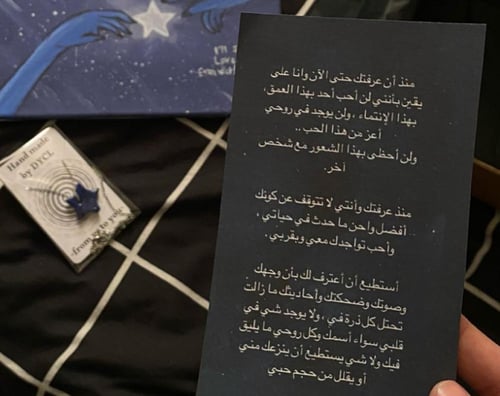 منذ أن عرفتك حتى الآن وأنا على
يقين بأنني لن أحب أحد بهذا العمق،
بهذا الإنتماء، ولن يوجد في روحي
أعز من هذا الحب..
ولن أحظى بهذا الشعور مع شخص
آخر.
منذ عرفتك وأنتي لا تتوقف عن كونك
أفضل واحن ما حدث في حياتي،
وأحب تواجدك معي وبقربي.
أستطيع أن أعترف لك بأن وجهك
وصوتك وضحكتك وأحاديثك ما زالت
تحتل كل ذرة في، ولا يوجد شي في
قلبي سواء أسمك وكل روحي ما يليق
فيك ولا شي يستطيع أن ينزعك مني
أو يقلل من حجم حبي
Hand made
by DYCL